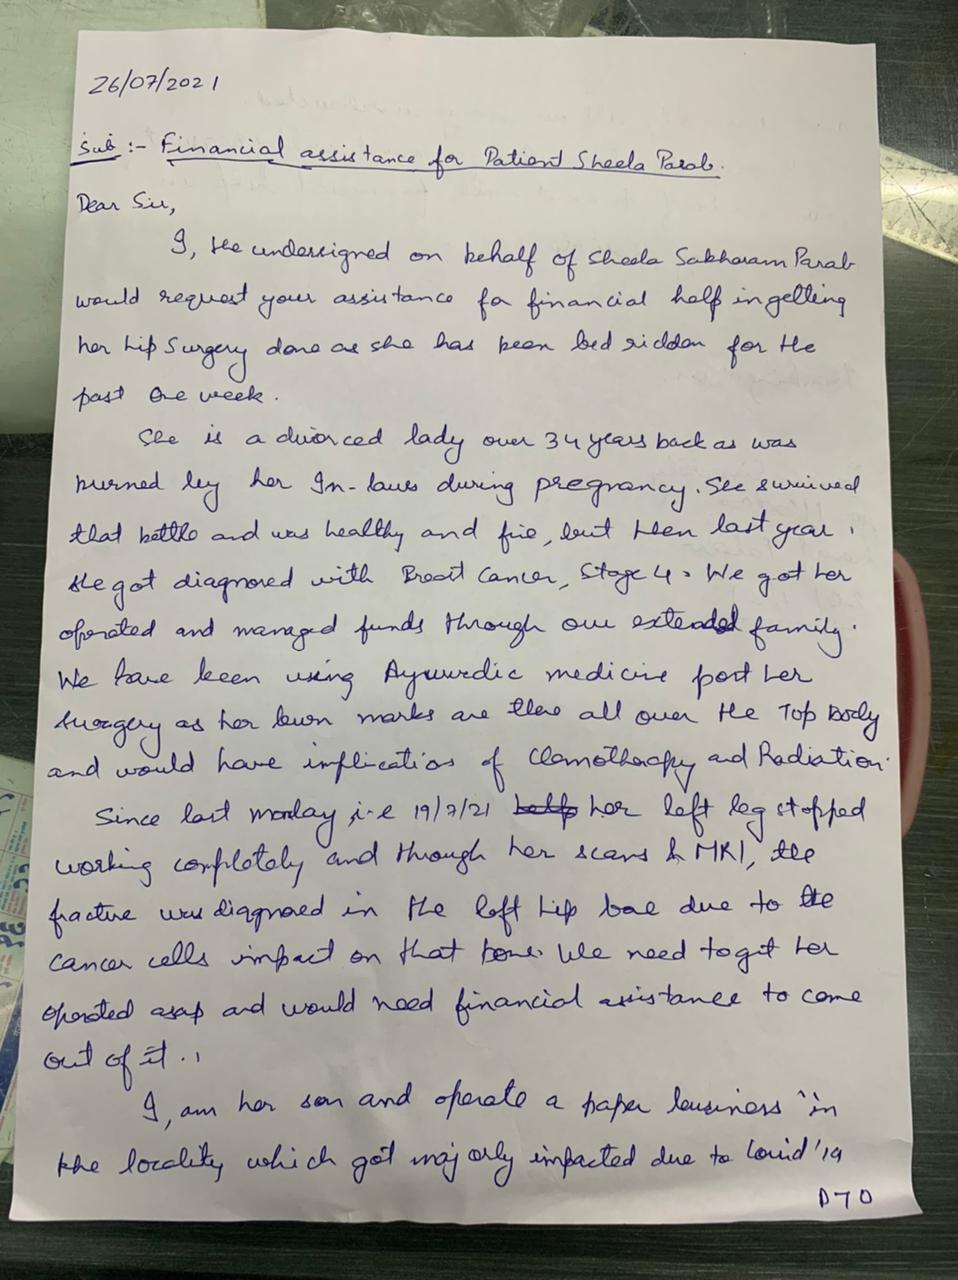 26/07/2021
Sub :- Financial assistance for Patient Sheela Parab.
Dear Sir,
I, the undersigned on behalf of Sheela Sakharam Parab
would request your assistance for financial half in getting
her hip Surgery done as she has been bed ridden for the
past one week.
She is a divorced lady over 34 years back as was
burned by her In-laws during pregnancy. She survived
that battle and was healthy and fine, but then last year.
she got diagnosed with Breast Cancer, Stage 4. We got her
operated and managed funds through our extended family.
We have been using Ayurvedic medicine post her
surgery as her burn marks are there all over the Top Body
and would have implications of Chemotherapy and Radiation.
Since last monday i.e 19/7/21 her left leg stopped
working completely and through her scans & MRI, the
fracture was diagnosed in the left hip bone due to the
cancer cells impact on that bone. We need to get her
operated asap and would need financial assistance to come
out of it..
I, am her son and operate a paper business in
the locality which got majorly impacted due to Covid'19